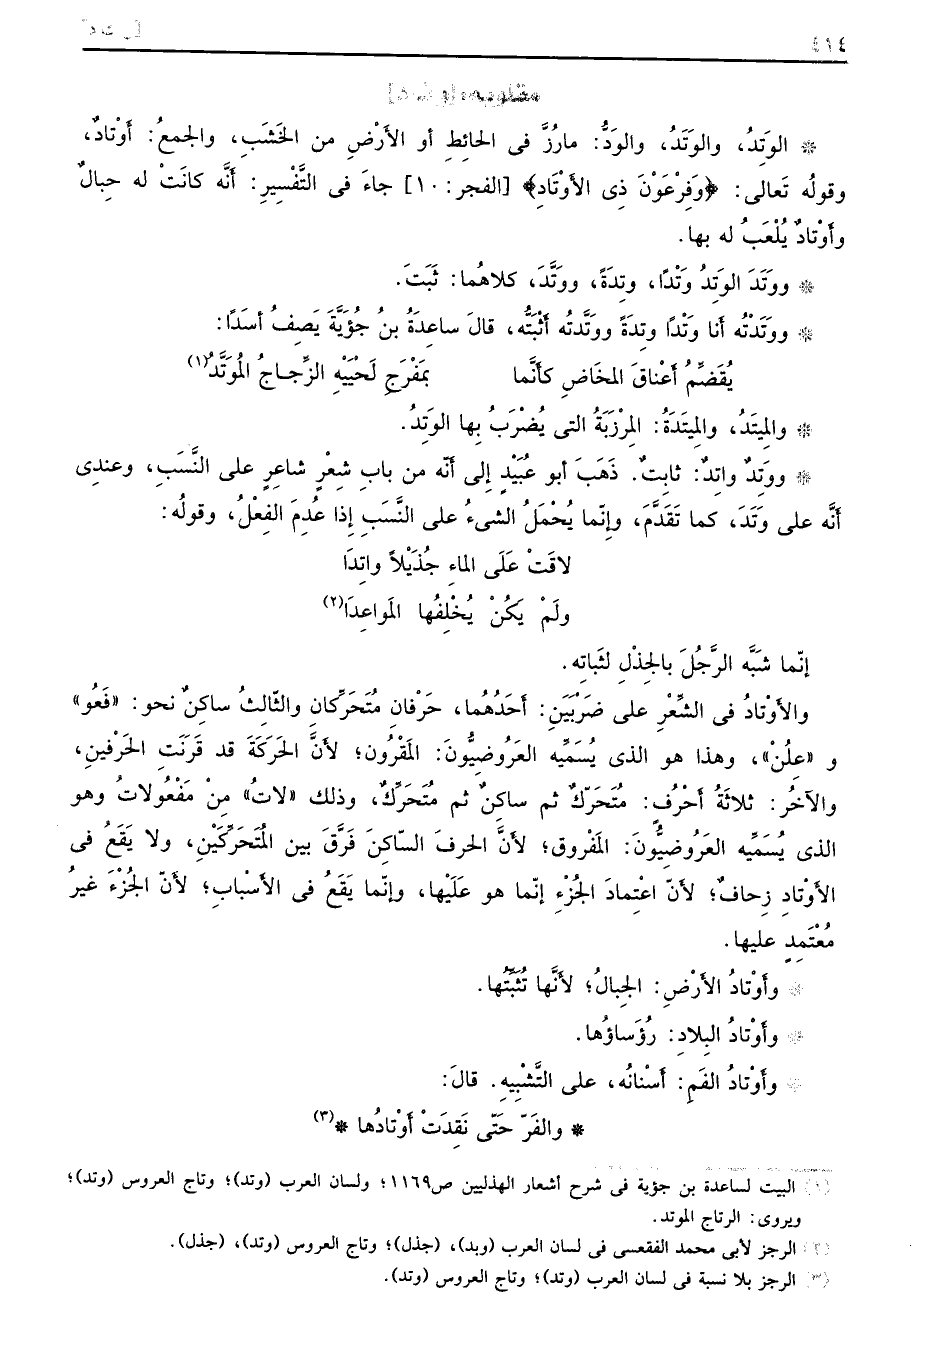 ٤١٤
[ل ت د]
مقلوبه: [و ت د]
* الوَتِدُ، والوَتَدُ، والوَدُّ: مارُزَّ فى الحائطِ أو الأرْضِ من الخَشَبِ، والجمعُ: أوْتادٌ،
وقولُه تَعالى: ﴿وَفِرْعَوْنَ ذِى الأوْتَادِ﴾ [الفجر: ١٠] جاءَ فى التَّفْسِيرِ: أنَّه كانَتْ له حِبالٌ
وأوْتادٌ يُلْعَبُ له بها.
* ووَتَدَ الوَتِدُ وَتْدًا، وتِدَةً، ووَتَّدَ، كلاهُما: ثَبَتَ.
* ووَتَدْتُه أنا وَتْدًا وتِدَةً ووَتَّدتُه أثْبَتُّه، قالَ ساعِدَةُ بنُ جُؤَيَّةَ يَصِفُ أسَدًا:
يُقَضِّمُ أعْناقَ المخَاضِ كأنَّما بمَفْرَجِ لَحْيَيْهِ الزِّجـاجُ المُوَتَّدُ(١)
* والمِيتَدُ، والمِيتَدَةُ: المِرْزَبَةُ التى يُضْرَبُ بِها الوَتِدُ.
* ووَتِدٌ واتِدٌ: ثابِتٌ. ذَهَبَ أبو عُبَيْدٍ إلى أنّه من بابِ شِعْرٍ شاعِرٍ على النَّسَبِ، وعندِى
أنَّه على وَتَدَ، كما تَقَدَّمَ، وإنّما يُحْمَلُ الشىءُ على النَّسَبِ إذا عُدِمَ الفِعْلُ، وقولُه:
لاقَتْ عَلَى الماءِ جُذَيْلاً واتِدَا
ولَمْ يَكُنْ يُخْلِفُها المَواعِدَا(٢)
إنّما شَبَّه الرَّجُلَ بالجِذْلِ لثَباتِه.
والأوْتادُ فى الشِّعْرِ على ضَرْبَيَنِ: أحَدُهُما، حَرْفانِ مُتَحَرِّكانِ والثّالِثُ ساكِنٌ نحو: «فَعُو»
و «عِلُنْ»، وهذا هو الذى يُسَمِّيه العَرُوضِيُّونَ: المَقْرُون؛ لأنَّ الحَرَكَةَ قد قَرَنَتِ الحَرْفينِ،
والآخَرُ: ثلاثَةُ أحْرُفٍ: مُتَحَرِّكٌ ثم ساكِنٌ ثم مُتَحَرِّكٌ، وذلك «لاتُ» مِنْ مَفْعُولاتُ وهو
الذى يُسَمِّيه العَرُوضِيُّونَ: المَفْروق؛ لأنَّ الحرفَ السّاكنَ فَرَّقَ بين المُتَحَرِّكَيْنِ، ولا يَقَعُ فى
الأوْتادِ زِحافٌ؛ لأنّ اعْتِمادَ الجُزْءِ إنّما هو عَلَيْها، وإنّما يَقَعُ فى الأسْبابِ؛ لأنّ الجُزْءَ غيرُ
مُعْتَمِدٍ عليها.
* وأوْتادُ الأرْضِ: الجِبالُ؛ لأنَّها تُثَبِّتُها.
* وأوْتادُ البِلادِ: رُؤَساؤُها.
* وأوْتادُ الفَمِ: أسْنانُه، على التَّشْبِيهِ. قالَ:
* والفَرّ حَتّى نَقِدَتْ أوْتادُها *(٣)
(١) البيت لساعدة بن جؤية فى شرح أشعار الهذليين ص١١٦٩؛ ولسان العرب (وتد)؛ وتاج العروس (وتد)؛
ويروى: الرتاج الموتد.
(٢) الرجز لأبى محمد الفقعسى فى لسان العرب (وبد)، (جذل)؛ وتاج العروس (وتد)، (جذل).
(٣) الرجز بلا نسبة فى لسان العرب (وتد)؛ وتاج العروس (وتد).